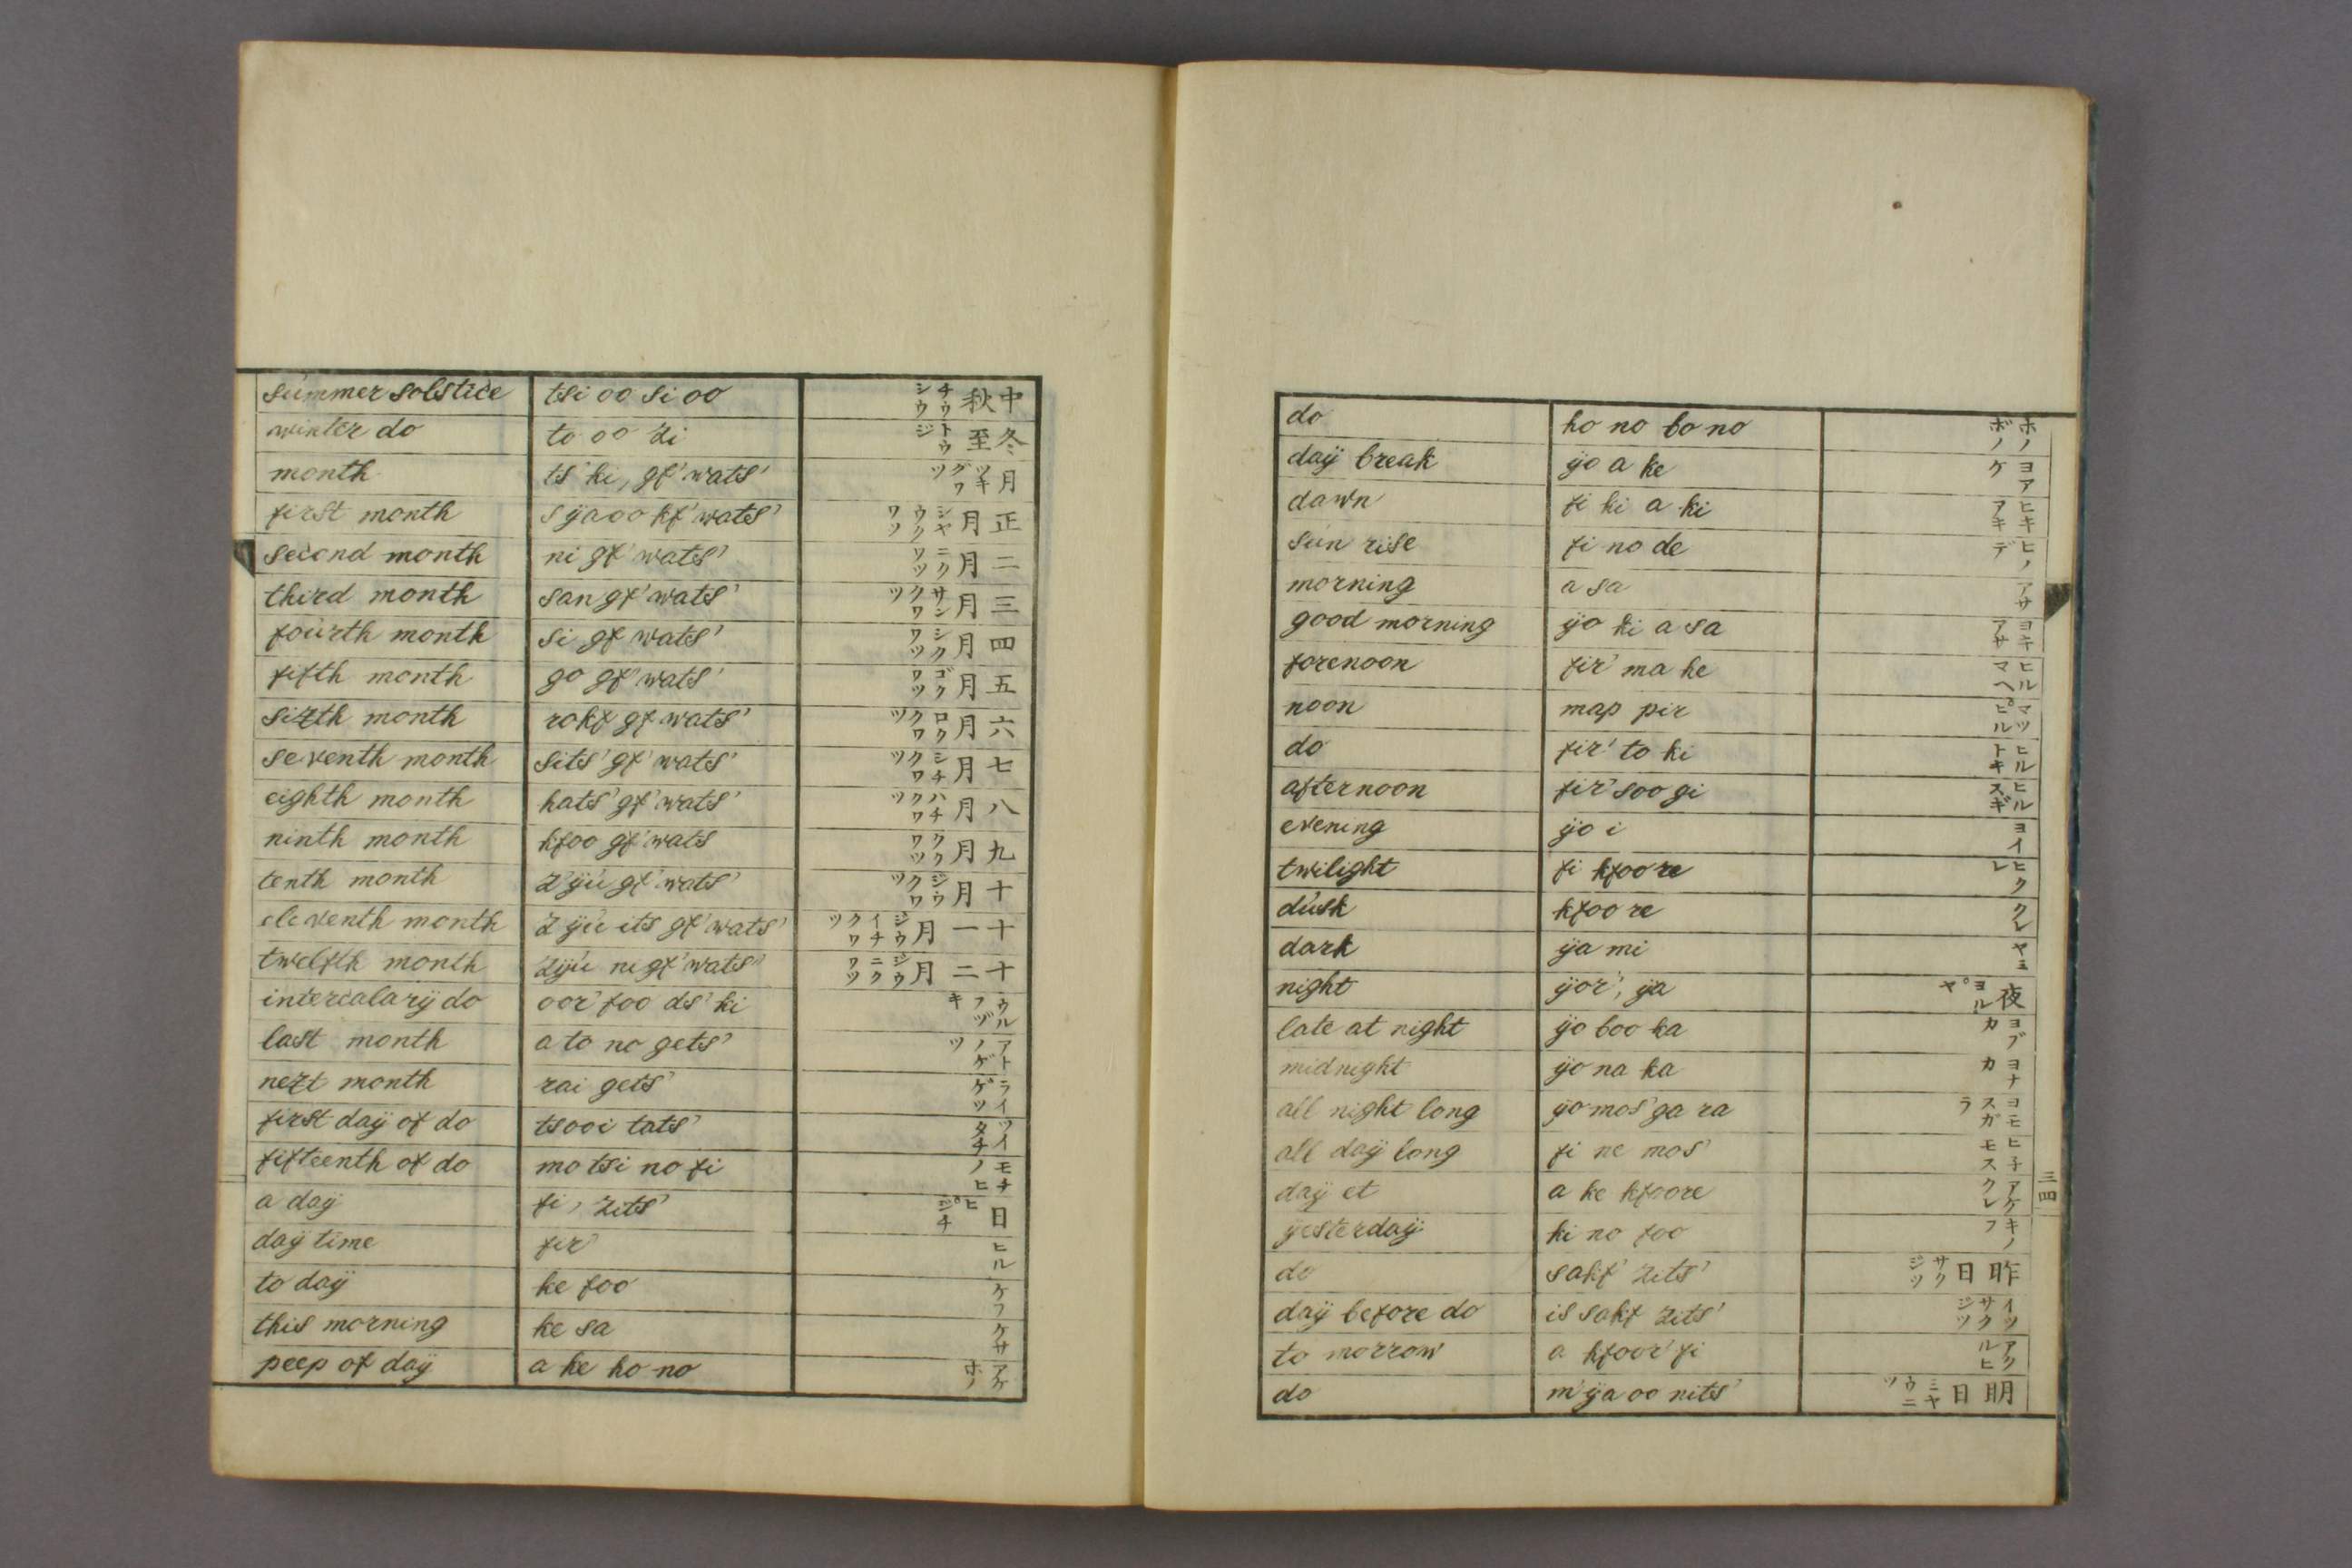 summer solstice tsi oo si oo 中秋 チウ シウ
winter do to oo zi 冬至 トウ ジ
month ts' ki, gf' wats' 月 ツキ グワ ツ
first month s ÿa oo kf' wats' 正月 シヤ ウク ワツ
second month ni gf' wats' 二月 ニク ワツ
third month san gf' wats' 三月 サン クワ ツ
fourth month si gf wats' 四月 シク ワツ
fifth month go gf' wats' 五月 ゴク ワツ
sixth month rokf gf wats' 六月 ロク クワ ツ
seventh month sits' gf' wats' 七月 シチ クワ ツ
eighth month hats' gf' wats' 八月 ハチ クワ ツ
ninth month kfoo gf' wats 九月 クク ワツ
tenth month z'ÿu gf' wats' 十月 ジウ クワ ツ
eleventh month z ÿu its gf' wats' 十一月 ジウ イチ クワ ツ
twelfth month zÿu ni gf' wats' 十二月 ジウ ニク ワツ
intercalarÿ do oor' foo ds' ki ウル フヅ キ
last month a to no gets' アト ノゲ ツ
next month rai gets' ライ ゲツ
first daÿ of do tsooi tats' ツイ タチ
fifteenth of do mo tsi no fi モチ ノヒ
a daÿ fi, zits' 日 ヒ゜ ジチ
daÿ time fir' ヒル
to daÿ ke foo ケフ
this morning ke sa ケサ
peep of daÿ a ke ho no アケ ホノ
do ho no bo no ホノ ボノ
daÿ break ÿo a ke ヨア ケ
dawn fi ki a ki ヒキ アキ
sun rise fi no de ヒノ デ
morning a sa アサ
good morning ÿo ki a sa ヨキ アサ
forenoon fir' ma he ヒル マヘ
noon map pir マツ ピル
do fir' to ki ヒル トキ
afternoon fir' soo gi ヒル スギ
evening ÿo i ヨイ
twilight fi kfoo re ヒク レ
dusk kfoo re クレ
dark ÿa mi ヤミ
night ÿor', ÿa 夜 ヨル゜ ヤ
late at night ÿo boo ka ヨブ カ
midnight ÿo na ka ヨナ カ
all night long ÿo mos' ga ra ヨモ スガ ラ
all daÿ long fi ne mos' ヒ子 モス
daÿ et a ke kfoore アケ クレ
ÿesterdaÿ ki no foo キノ フ
do sakf' zits' 昨日 サク ジツ
daÿ before do is sakf zits' イツ サク ジツ
to morrow a kfoor' fi アク ルヒ
do m'ÿa oo nits' 明日 ミヤ ウニ ツ
三四